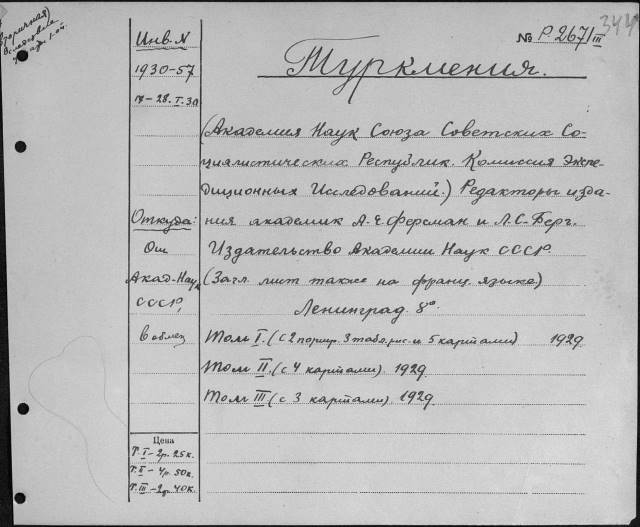 344
вторичная)
Инв. N
№ Р. 2671/III
1930-57
Туркмения.
IV – 28. I. 30
(Академия Наук Союза Советских Со-
циалистических Республик. Комиссия Экспе-
диционных Исследований.) Редакторы изда-
Откуда:
ния академик А. Е. Ферсман и Л. С. Берг.
От
Издательство Академии Наук СССР.
Акад. Наук
(Загл. лист также на франц. языке)
СССР,
Ленинград. 8°.
в обмен
Том I. (с 2 портр. 3 табл. рис. и 5 картами) 1929
Том II. (с 4 картами). 1929.
Том III (с 3 картами). 1929.
Цена
Т. I – 2р. 25 к.
Т. II – 4р. 50 к.
Т. III – 2р. 40 к.